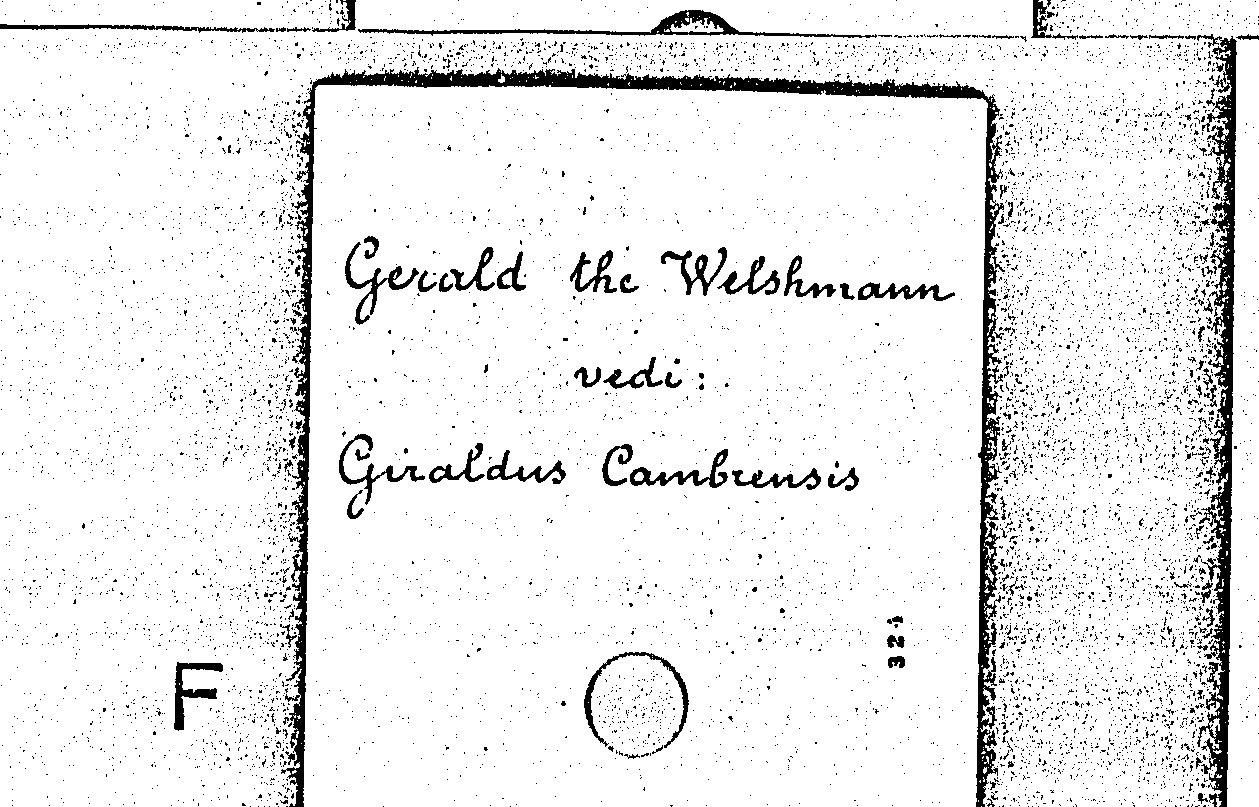 Gerald the Welshmann
vedi:
Giraldus Cambrensis
F